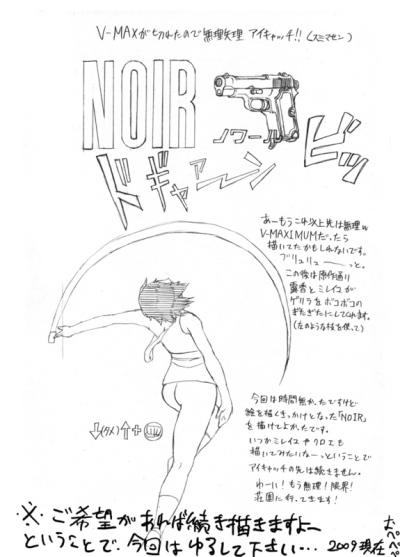 V-MAXが切れたので無理矢理 アイキャッチ!! (スミマセン)
NOIR
ノワール
ビッ
ドギャァーン
あーもうこれ以上先は無理w
V-MAXIMUMだったら
描いてたかもしれないです。
ブリュリューーっと。
この後は原作通り
霧香とミレイユが
ゲリラをボコボコの
ぎたぎたにしてくれます。
(左のような技を使って)
今回は時間無かったですけど
絵を描くきっかけとなった「NOIR」
を描けてよかったです。
いつかミレイユやクロエも
描いてみたいなーっということで
アイキャッチの先は続きません。
わーい!もう無理!限界!
荘園に行ってきます!
↓(タメ)↑+
※ご希望があれば続き描きますよー
ということで、今回はゆるして下さい… 2009現在